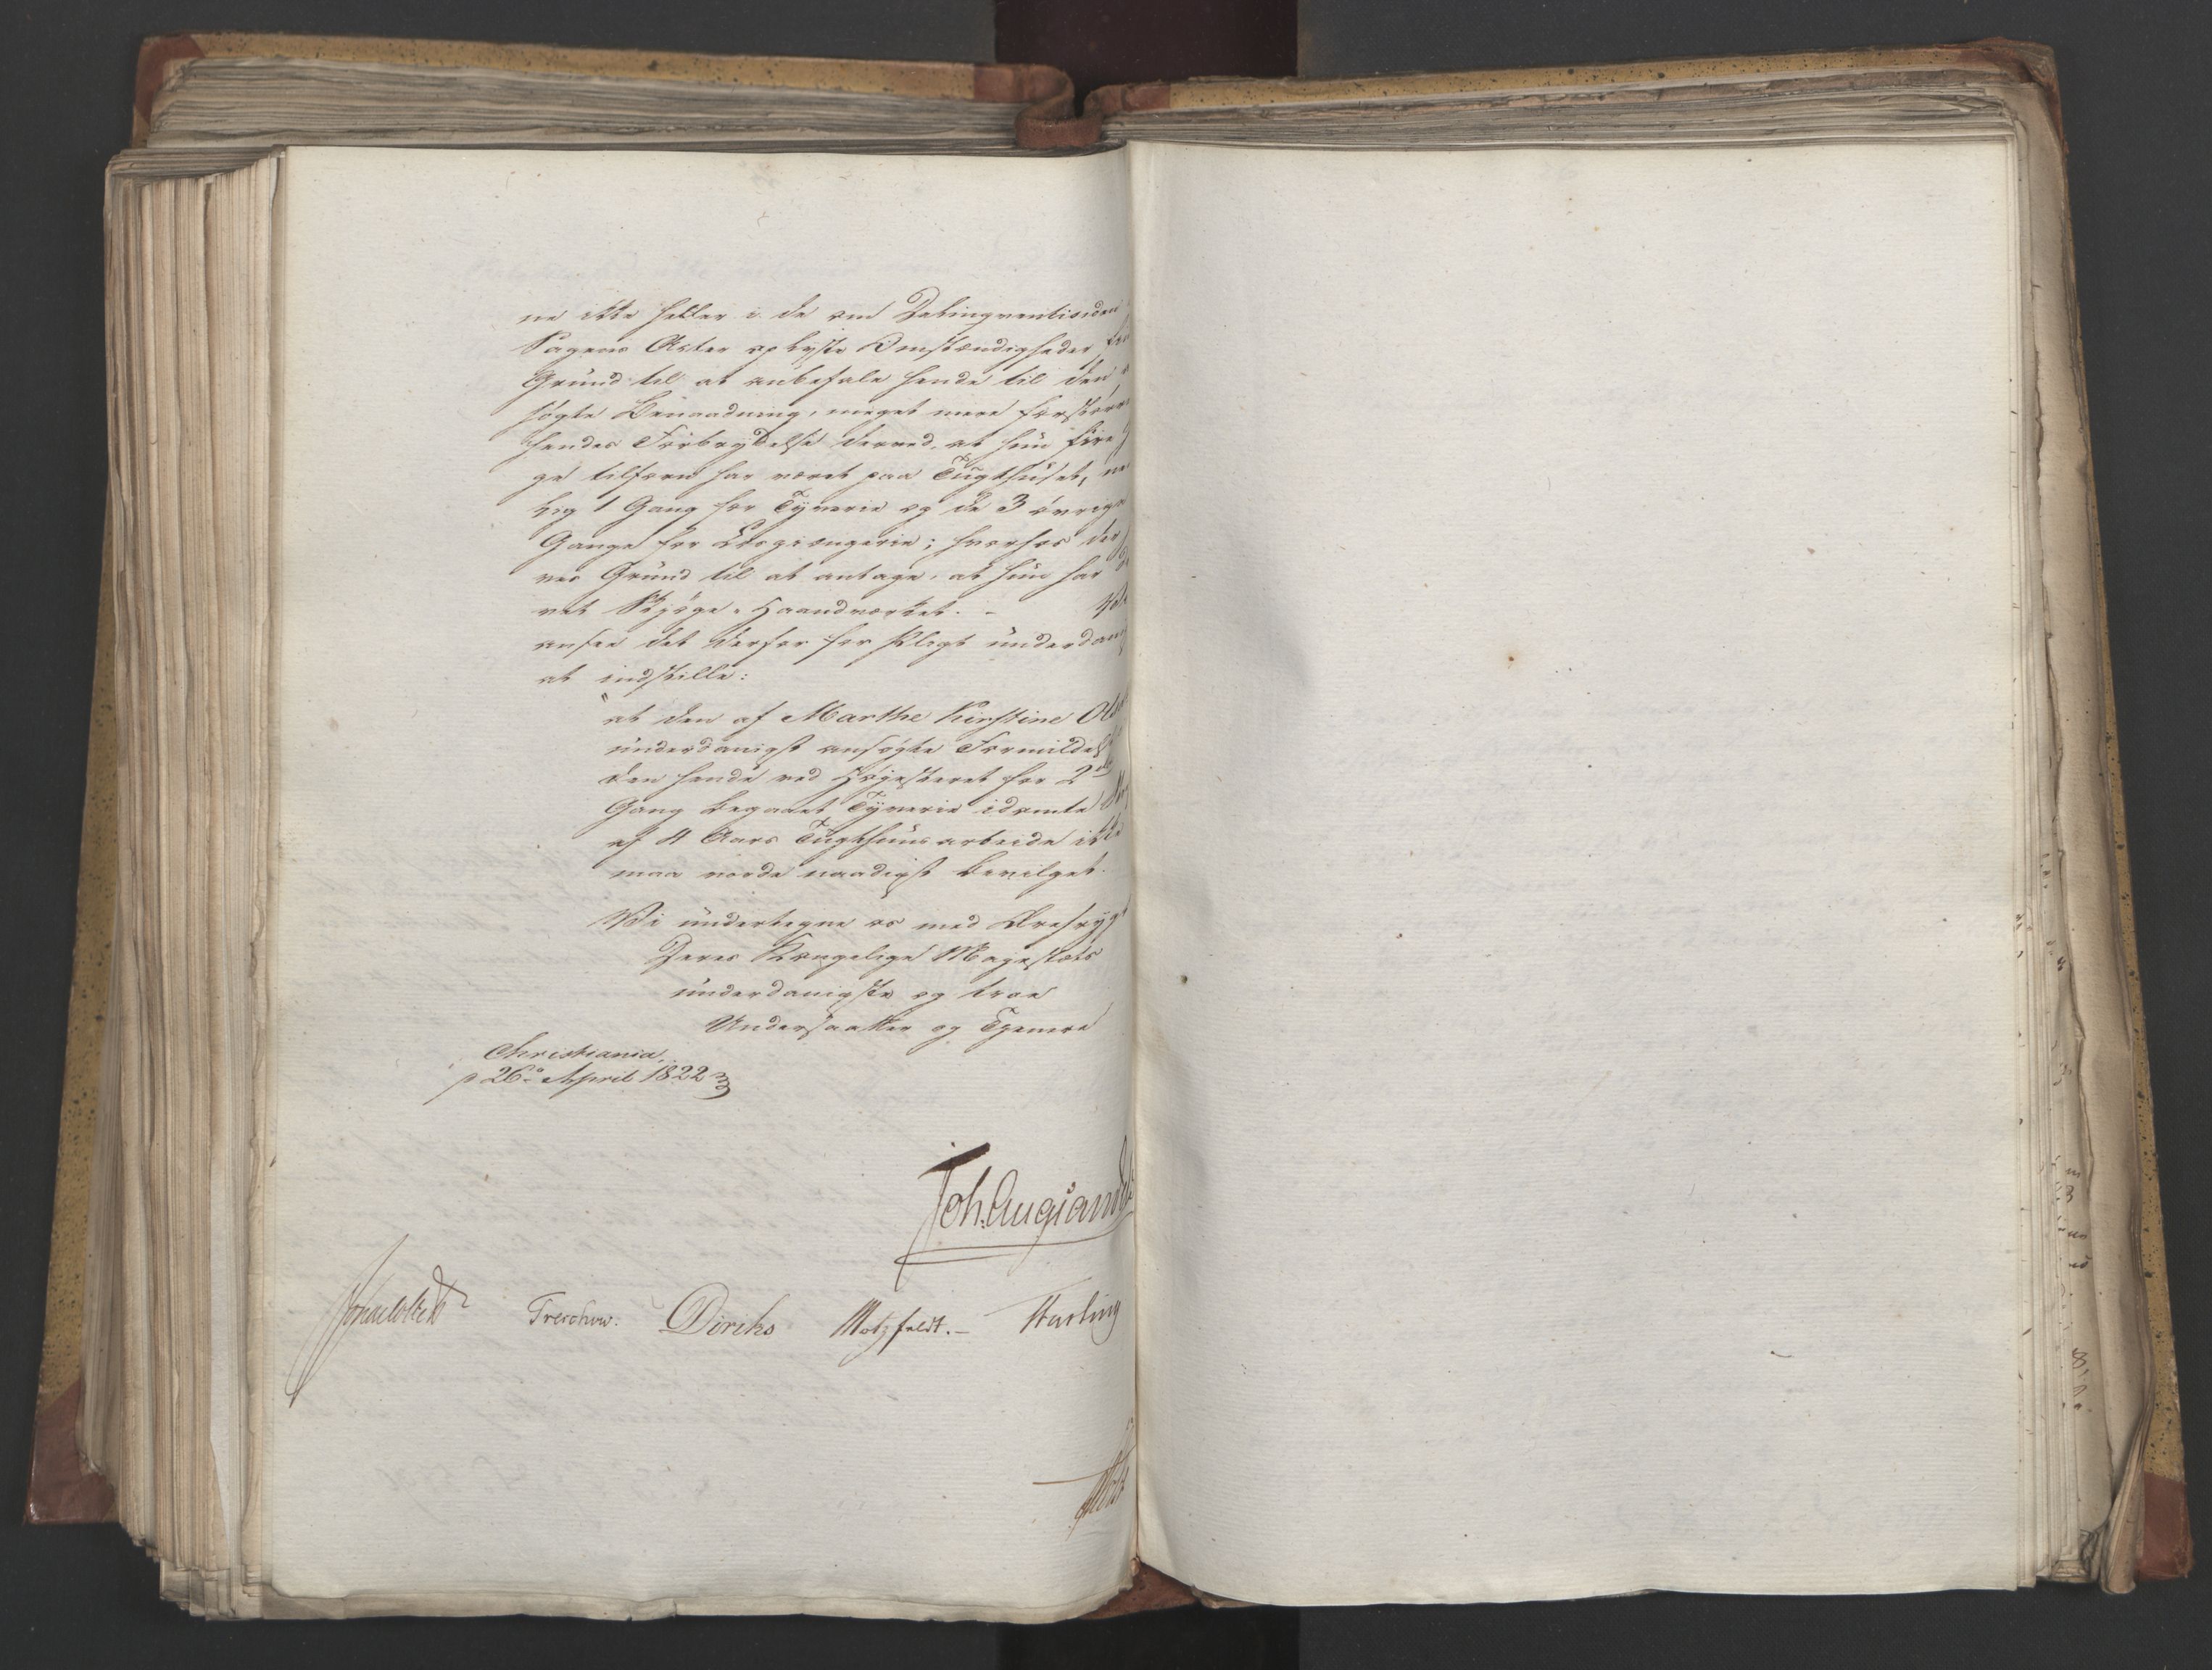 ne ikke heller i de om Delinqventinden
Sagens Acter oplyste Omstændigheder
Grund til at anbefale hende til den
søgte Benaadning, meget mere forstørre
hendes Forbrydelse derved, at hun fire
ge tilforn har været paa Tugthuset, ne
lig 1 Gang for Tyverie og de 3 øvrige
Gange for Løsgiængerie; hvorhos der
ves Grund til at antage, at hun har
vet Skjøge-Haandværket. -
ansee det derfor for Pligt underdanig
at indstille:
"at den af Marthe Kirstine Ols
underdanigst ansøgte Formildelse
den hende ved Høiesteret for 2den
Gang begaaet Tyverie idømte
af 4 Aars Tugthuusarbeide ikke
maa vorde naadigst bevilget.
Vi undertegne os med Ærefrygt
Deres Kongelige Majestæts
underdanigste og troe
Undersaatter og Tjenere
Christiania,
d 26de April 1822
Joh. Aug Sandels
Sommerfeldt Treschow. Diriks Motzfeldt. - Fasting
Holst